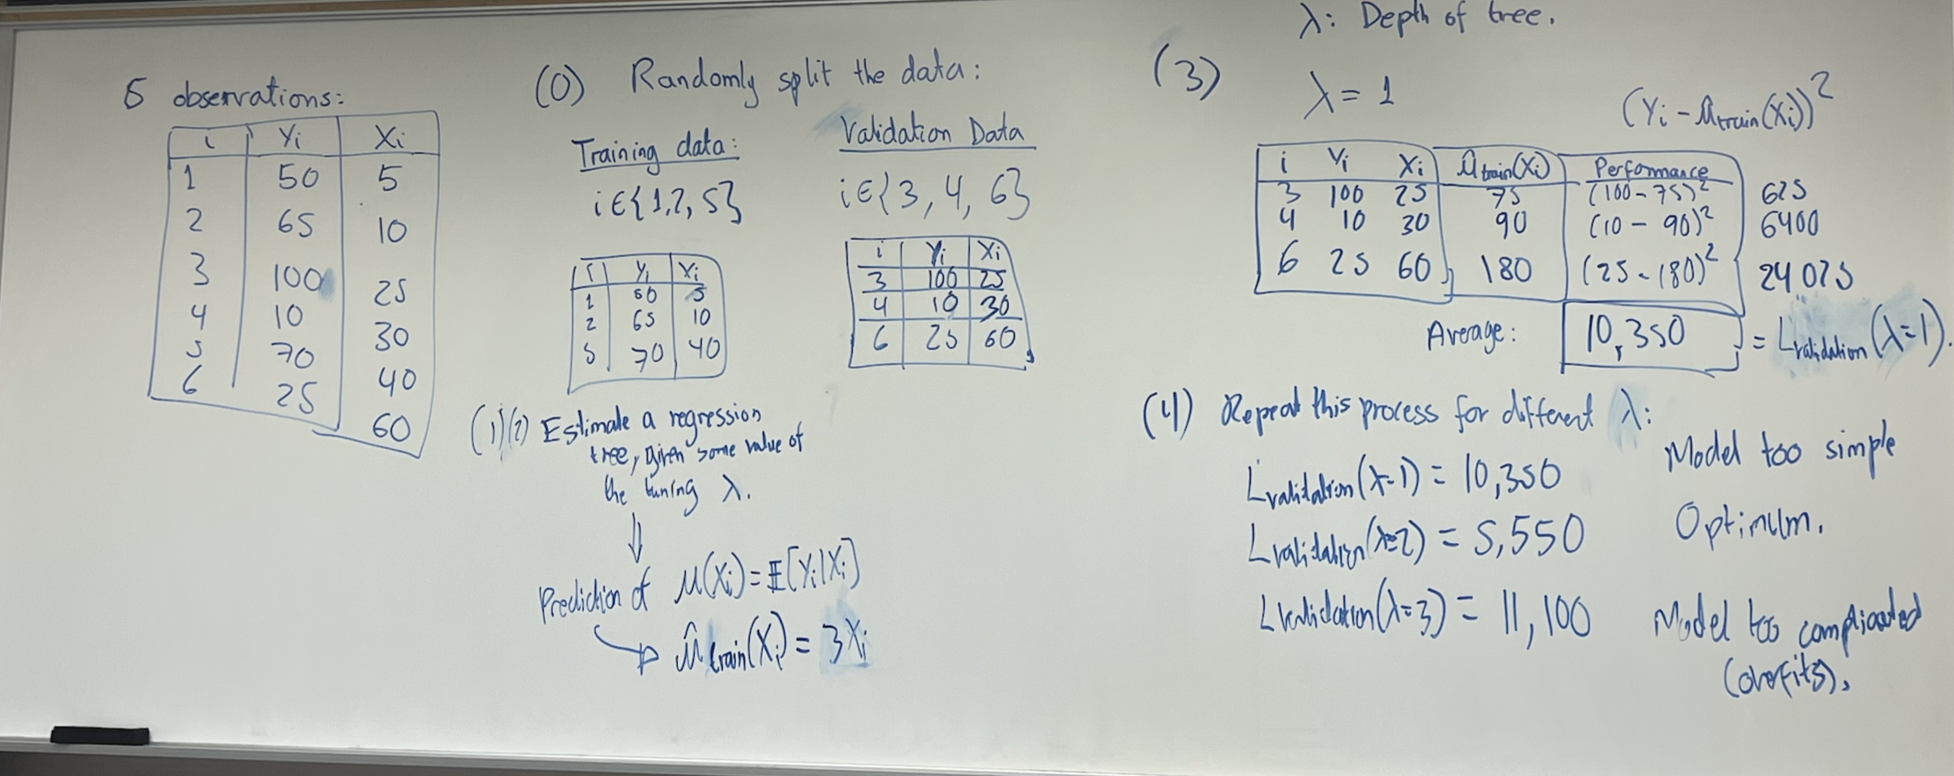 5 observations:
i Yi Xi
1 50 5
2 65 10
3 100 25
4 10 30
5 70 40
6 25 60
(0) Randomly split the data:
Training data:
i∈{1,2,5}
i Yi Xi
1 50 5
2 65 10
5 70 40
Validation Data
i∈{3,4,6}
i Yi Xi
3 100 25
4 10 30
6 25 60
(1)(2) Estimate a regression
tree, given some value of
the tuning λ.
⇓
Prediction of μ(Xi)=𝔼[Yi|Xi]
μ̂train(Xi) = 3Xi
λ: Depth of tree.
(3) λ = 1
(Yi - μ̂train(Xi))²
i Yi Xi μ̂train(Xi) Performance
3 100 25 75 (100-75)² 625
4 10 30 90 (10-90)² 6400
6 25 60 180 (25-180)² 24025
Average: 10,350 = Lvalidation(λ=1).
(4) Repeat this process for different λ:
Lvalidation(λ=1) = 10,350 Model too simple
Lvalidation(λ=2) = 5,550 Optimum.
Lvalidation(λ=3) = 11,100 Model too complicated
(overfits).